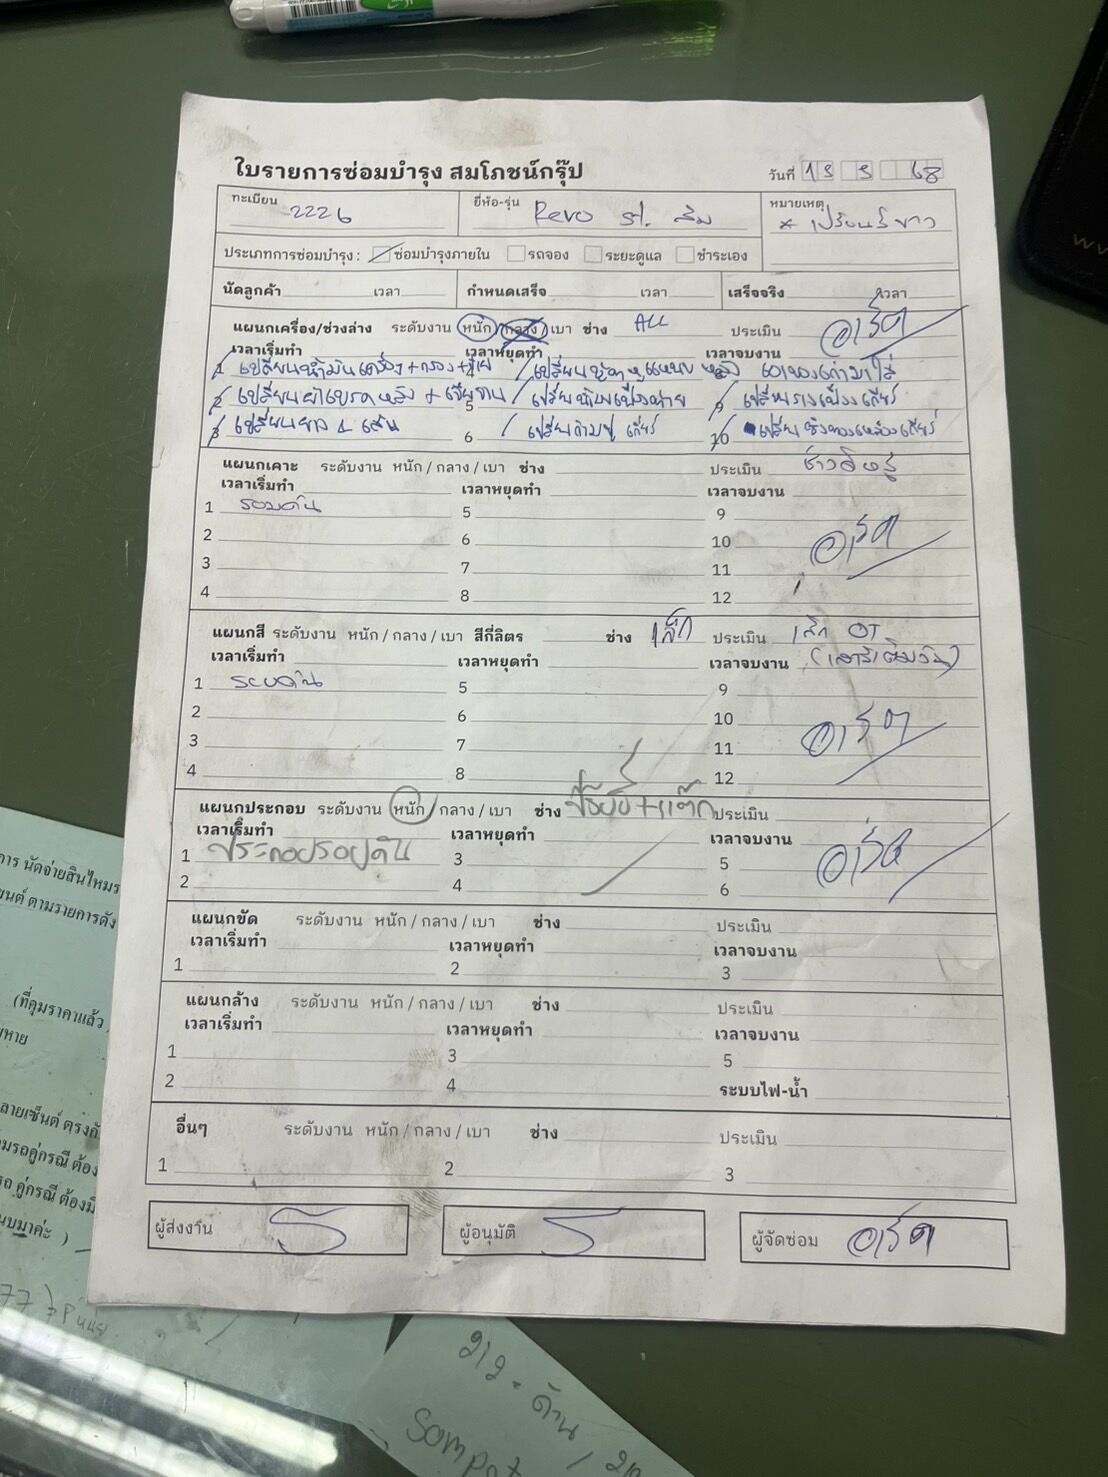 ใบรายการซ่อมบำรุง สมโภชน์กรุ๊ป
วันที่ 13 3 68
ทะเบียน 2226 ยี่ห้อ-รุ่น Revo หมายเหตุ
ประเภทการซ่อมบำรุง : ซ่อมบำรุงภายใน รถจอง ระยะดูแล ชำระเอง
นัดลูกค้า เวลา กำหนดเสร็จ เวลา เสร็จจริง เวลา
แผนกเครื่อง/ช่วงล่าง ระดับงาน หนัก / กลาง / เบา ช่าง ALL ประเมิน อาร์ต
เวลาเริ่มทำ เวลาหยุดทำ เวลาจบงาน
1 เปลี่ยนน้ำมันเครื่อง+กรอง+ไส้ 4 เปลี่ยน หูแหนบ หลัง เอาของเก่ามาใส่
2 เปลี่ยนผ้าเบรคหลัง + เจียจาน 5 เปลี่ยนน้ำมันเฟืองท้าย 9 เปลี่ยน เกียร์
3 เปลี่ยนยาง 4 เส้น 6 เปลี่ยน เกียร์ 10 เปลี่ยน เกียร์
แผนกเคาะ ระดับงาน หนัก / กลาง / เบา ช่าง ประเมิน
เวลาเริ่มทำ เวลาหยุดทำ เวลาจบงาน
1 รอบคัน 5 9
2 6 10 อาร์ต
3 7 11
4 8 12
แผนกสี ระดับงาน หนัก / กลาง / เบา สีกี่ลิตร ช่าง เล็ก ประเมิน เล็ก OT
เวลาเริ่มทำ เวลาหยุดทำ เวลาจบงาน
1 รอบคัน 5 9
2 6 10
3 7 11 อาร์ต
4 8 12
แผนกประกอบ ระดับงาน หนัก / กลาง / เบา ช่าง ประเมิน
เวลาเริ่มทำ เวลาหยุดทำ เวลาจบงาน
1 ประกอบรอบคัน 3 5 อาร์ต
2 4 6
แผนกขัด ระดับงาน หนัก / กลาง / เบา ช่าง ประเมิน
เวลาเริ่มทำ เวลาหยุดทำ เวลาจบงาน
1 2 3
แผนกล้าง ระดับงาน หนัก / กลาง / เบา ช่าง ประเมิน
เวลาเริ่มทำ เวลาหยุดทำ เวลาจบงาน
1 3 5
2 4 ระบบไฟ-น้ำ
อื่นๆ ระดับงาน หนัก / กลาง / เบา ช่าง ประเมิน
1 2 3
ผู้ส่งงาน ผู้อนุมัติ ผู้จัดซ่อม อาร์ต
การ นัดจ่ายสินไหม
ยนต์ ตามรายการดัง
(ที่คุมราคาแล้ว
ยหาย
ลายเซ็นต์ ตรงกับ
มรถคู่กรณี ต้อง
ถ คู่กรณี ต้องมี
นบมาค่ะ )
77
212 - ด้าน / 212